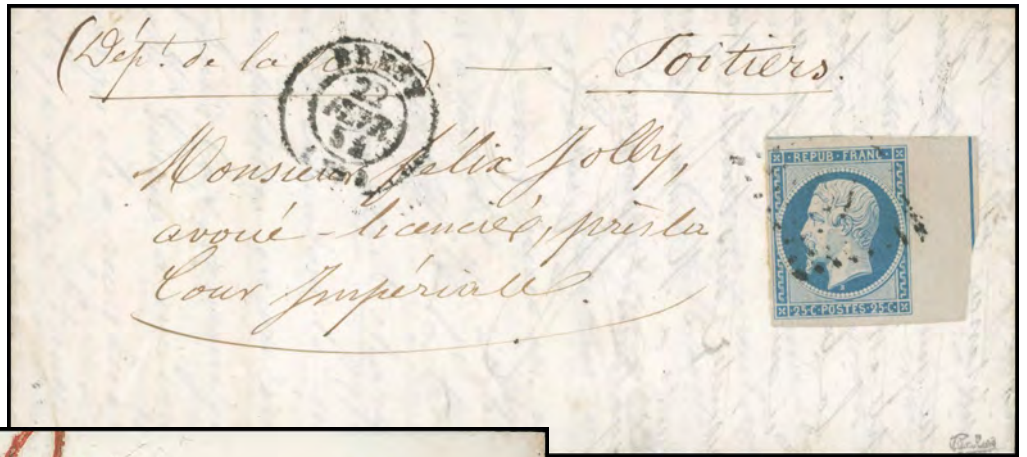 (Dépt. de la ) — Poitiers.
BREST
22
FEVR
54
Monsieur Félix Jolly,
avoué - licencié, près la
Cour Impériale
REPUB·FRANC·
25·C·POSTES·25·C